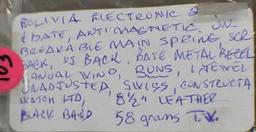 BOLIVIA ELECTRONIC 2
& DATE, ANTI MAGNETIC, UN
BREAKABLE MAIN SPRING SCR
BACK, SS BACK, BASE METAL BEZEL
MANUAL WIND, RUNS, 1 JEWEL
UNADJUSTED, SWISS, CONSTRUCTA
WATCH LTD, 8½" LEATHER
BLACK BAND 58 grams T.W.
103